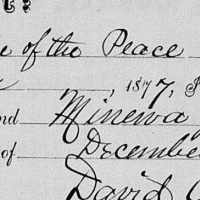 e of the Peace
, 1877,
nd Minerva
of December
David